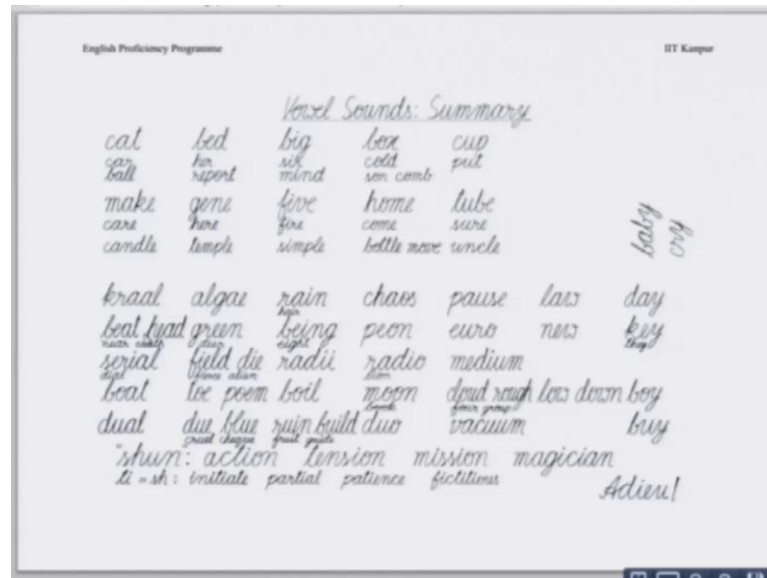 English Proficiency Programme IIT Kanpur
Vowel Sounds: Summary
cat bed big box cup
car her sir cold put
ball report mind son comb
make gene five home tube
care here fire come sure
candle temple simple bottle move uncle
baby
cry
kraal algae rain chaos pause law day
hair
beat head green being peon euro new key
near earth deer eight they
serial field die radii radio medium
dial lion
boat toe poem boil moon cloud rough low down boy
book four group
dual due blue ruin build duo vacuum buy
cruel cheque fruit guide
"shun: action tension mission magician
ti = sh: initiate partial patience fictitious
Adieu!